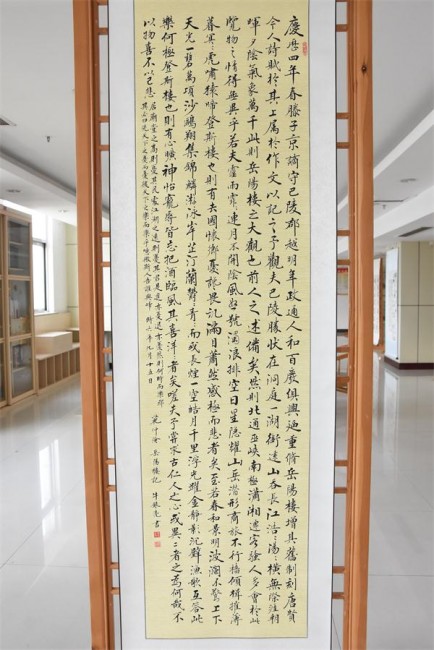 慶曆四年春滕子京謫守巴陵郡越明年政通人和百廢俱興迺重脩岳陽樓增其舊制刻唐賢
今人詩賦於其上屬於作文以記之予觀夫巴陵勝狀在洞庭一湖銜遠山吞長江浩〻湯〻橫無際涯朝
暉夕陰氣象萬千此則岳陽樓之大觀也前人之述備矣然則北通巫峽南極瀟湘遷客騷人多會於此
覽物之情得無異乎若夫霪雨霏〻連月不開陰風怒號濁浪排空日星隱耀山岳潛形商旅不行檣傾楫摧薄
暮冥〻虎嘯猿啼登斯樓也則有去國懷鄉憂讒畏譏滿目蕭然感極而悲者矣至若春和景明波瀾不驚上下
天光一碧萬頃沙鷗翔集錦鱗游泳岸芷汀蘭郁〻青〻而或長煙一空皓月千里浮光耀金靜影沉璧漁歌互答此
樂何極登斯樓也則有心曠神怡寵辱皆忘把酒臨風其喜洋〻者矣嗟夫予嘗求古仁人之心或異二者之為何哉不
以物喜不以己悲居廟堂之高則憂其民處江湖之遠則憂其君是進亦憂退亦憂然則何時而樂耶
其必曰先天下之憂而憂後天下之樂而樂乎噫微斯人吾誰與歸 時六年九月十五日
范仲淹 岳陽樓記 牛銀亮書